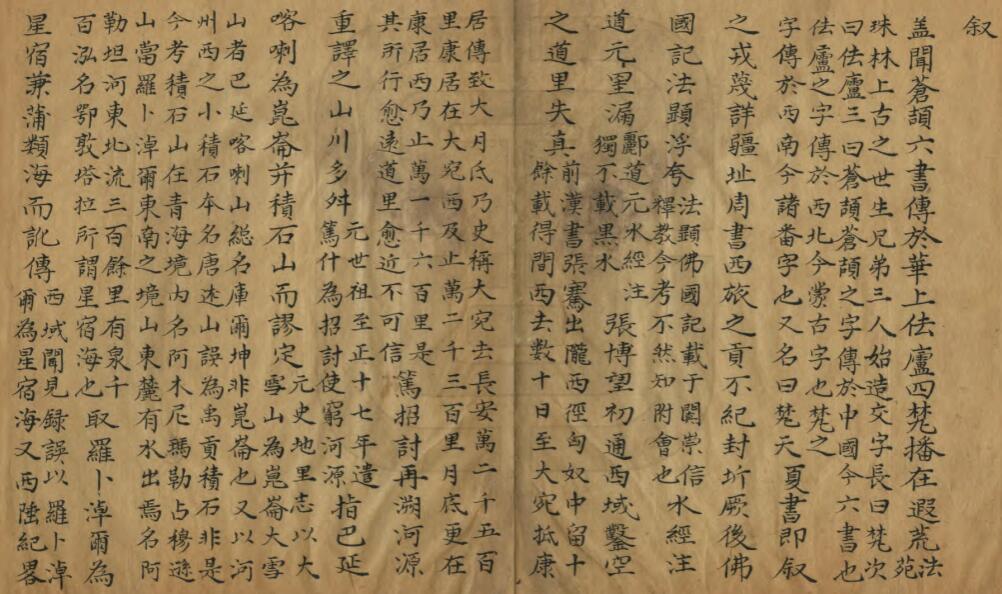 叙
盖聞蒼頡六書傳於華上佉盧四梵播在遐荒法苑
珠林上古之世生兄弟三人始造文字長曰梵次
曰佉盧三曰蒼頡蒼頡之字傳於中國今六書也
佉盧之字傳於西北今蒙古字也梵之
字傳於西南今諸番字也又名曰梵天夏書即叙
之戎蔑詳疆址周書西旅之貢不紀封圻厥後佛
國記法顯浮夸法顯佛國記載于闐崇信釋教今考不然知附會也水經注
道元罣漏酈道元水經注獨不載黑水張博望初通西域鑿空
之道里失真前漢書張騫出隴西徑匈奴中留十餘載得間西去數十日至大宛抵康
居傳致大月氐乃史稱大宛去長安萬二千五百
里康居在大宛西及止萬二千三百里月底更在
康居西乃止萬一千六百里是
其所行愈遠道里愈近不可信篤招討再溯河源
重譯之山川多舛元世祖至正十七年遣篤什為招討使窮河源指巴延
喀喇為崑崙并積石山而謬定元史地里志以大雪山為崑崙大雪
山者巴延喀喇山総名庫爾坤非崑崙也又以河
州西之小積石本名唐述山誤為禹貢積石非是
今考積石山在青海境内名阿木尼瑪勒占穆遜
山當羅卜淖爾東南之境山東麓有水出焉名阿
勒坦河東北流三百餘里有泉千
百泓名鄂敦塔拉所謂星宿海也取羅卜淖爾為
星宿兼蒲類海而訛傳西域聞見録誤以羅卜淖爾為星宿海又西陲紀畧